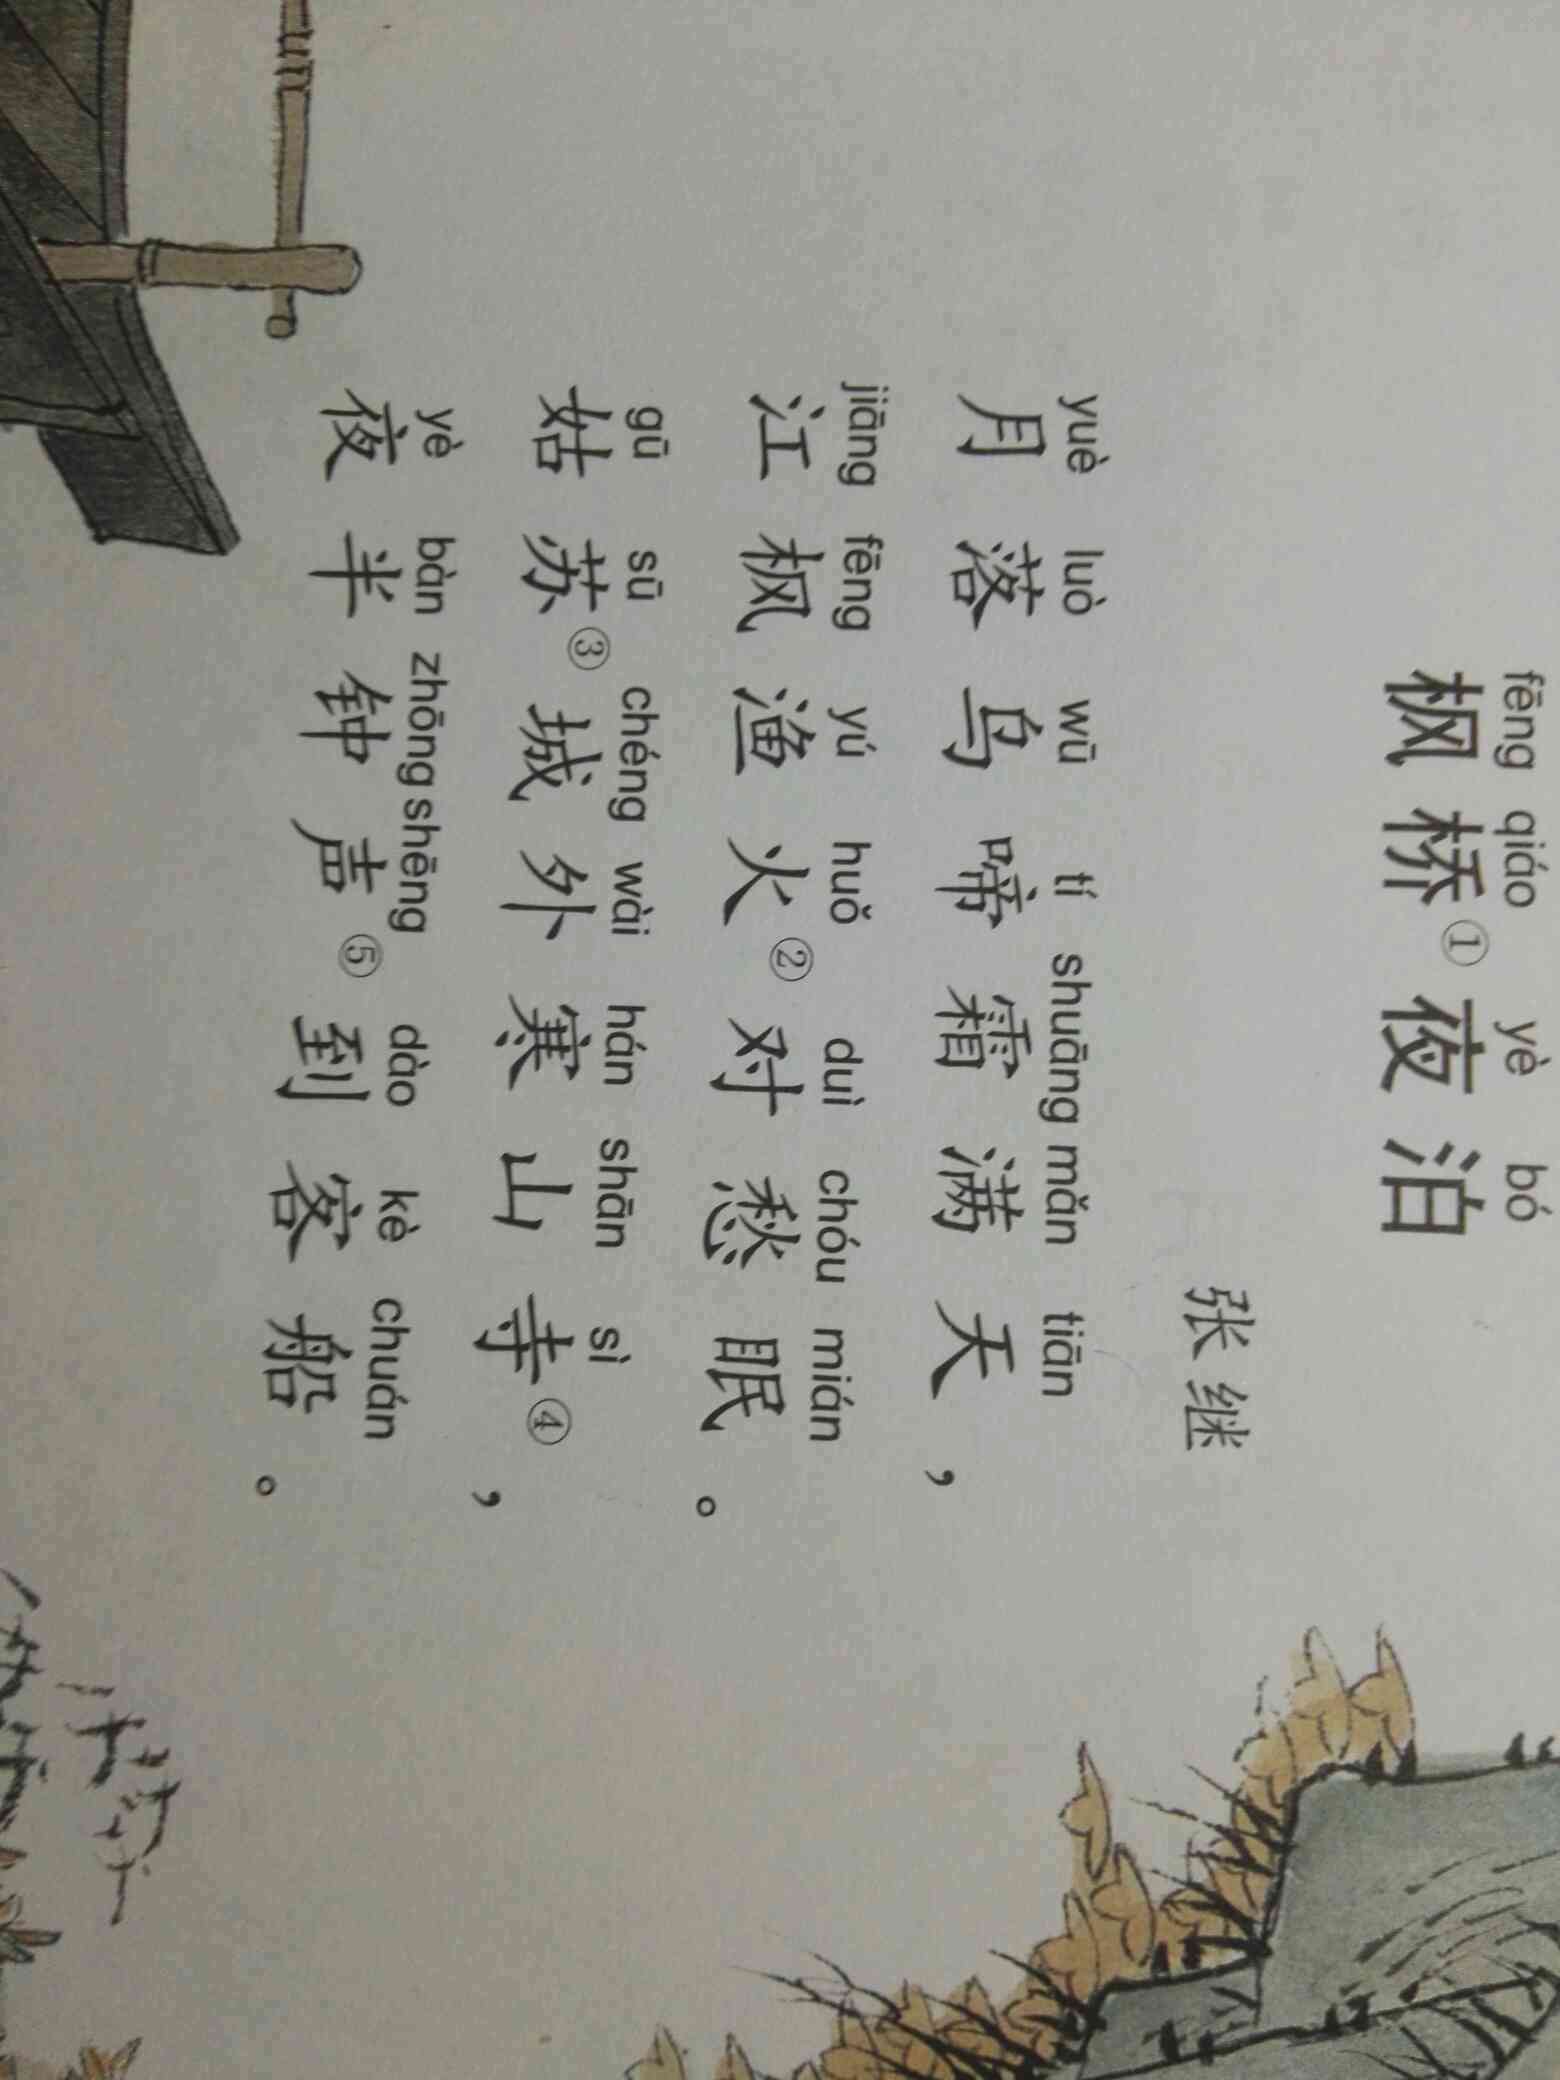 fēng qiáo yè bó
枫桥①夜泊
张继
yuè luò wū tí shuāng mǎn tiān
月落乌啼霜满天，
jiāng fēng yú huǒ duì chóu mián
江枫渔火②对愁眠。
gū sū chéng wài hán shān sì
姑苏③城外寒山寺④，
yè bàn zhōng shēng dào kè chuán
夜半钟声⑤到客船。